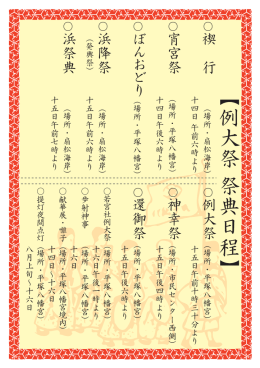 【例大祭 祭典日程】
○禊 行
（場所・扇松海岸）
十四日 午前六時より
○宵宮祭
（場所・平塚八幡宮）
十四日午後六時より
○ぼんおどり
（場所・平塚八幡宮）
○浜降祭
（発輿祭）
（場所・扇松海岸）
十五日午前六時より
○浜祭典
（場所・扇松海岸）
十五日午前七時より
○例大祭
（場所・平塚八幡宮）
十五日午前十時三十分より
○神幸祭
（場所・市民センター西側）
十五日午後四時より
○還御祭
（場所・平塚八幡宮）
十五日午後六時より
○若宮社例大祭（場所・平塚八幡宮）
十六日午後一時より
○歩射神事（場所・平塚八幡宮）
十六日
○献華展・囃子（場所・平塚八幡宮境内）
十四日〜十六日
○提灯夜間点灯（場所・平塚八幡宮）
八月上旬〜十六日